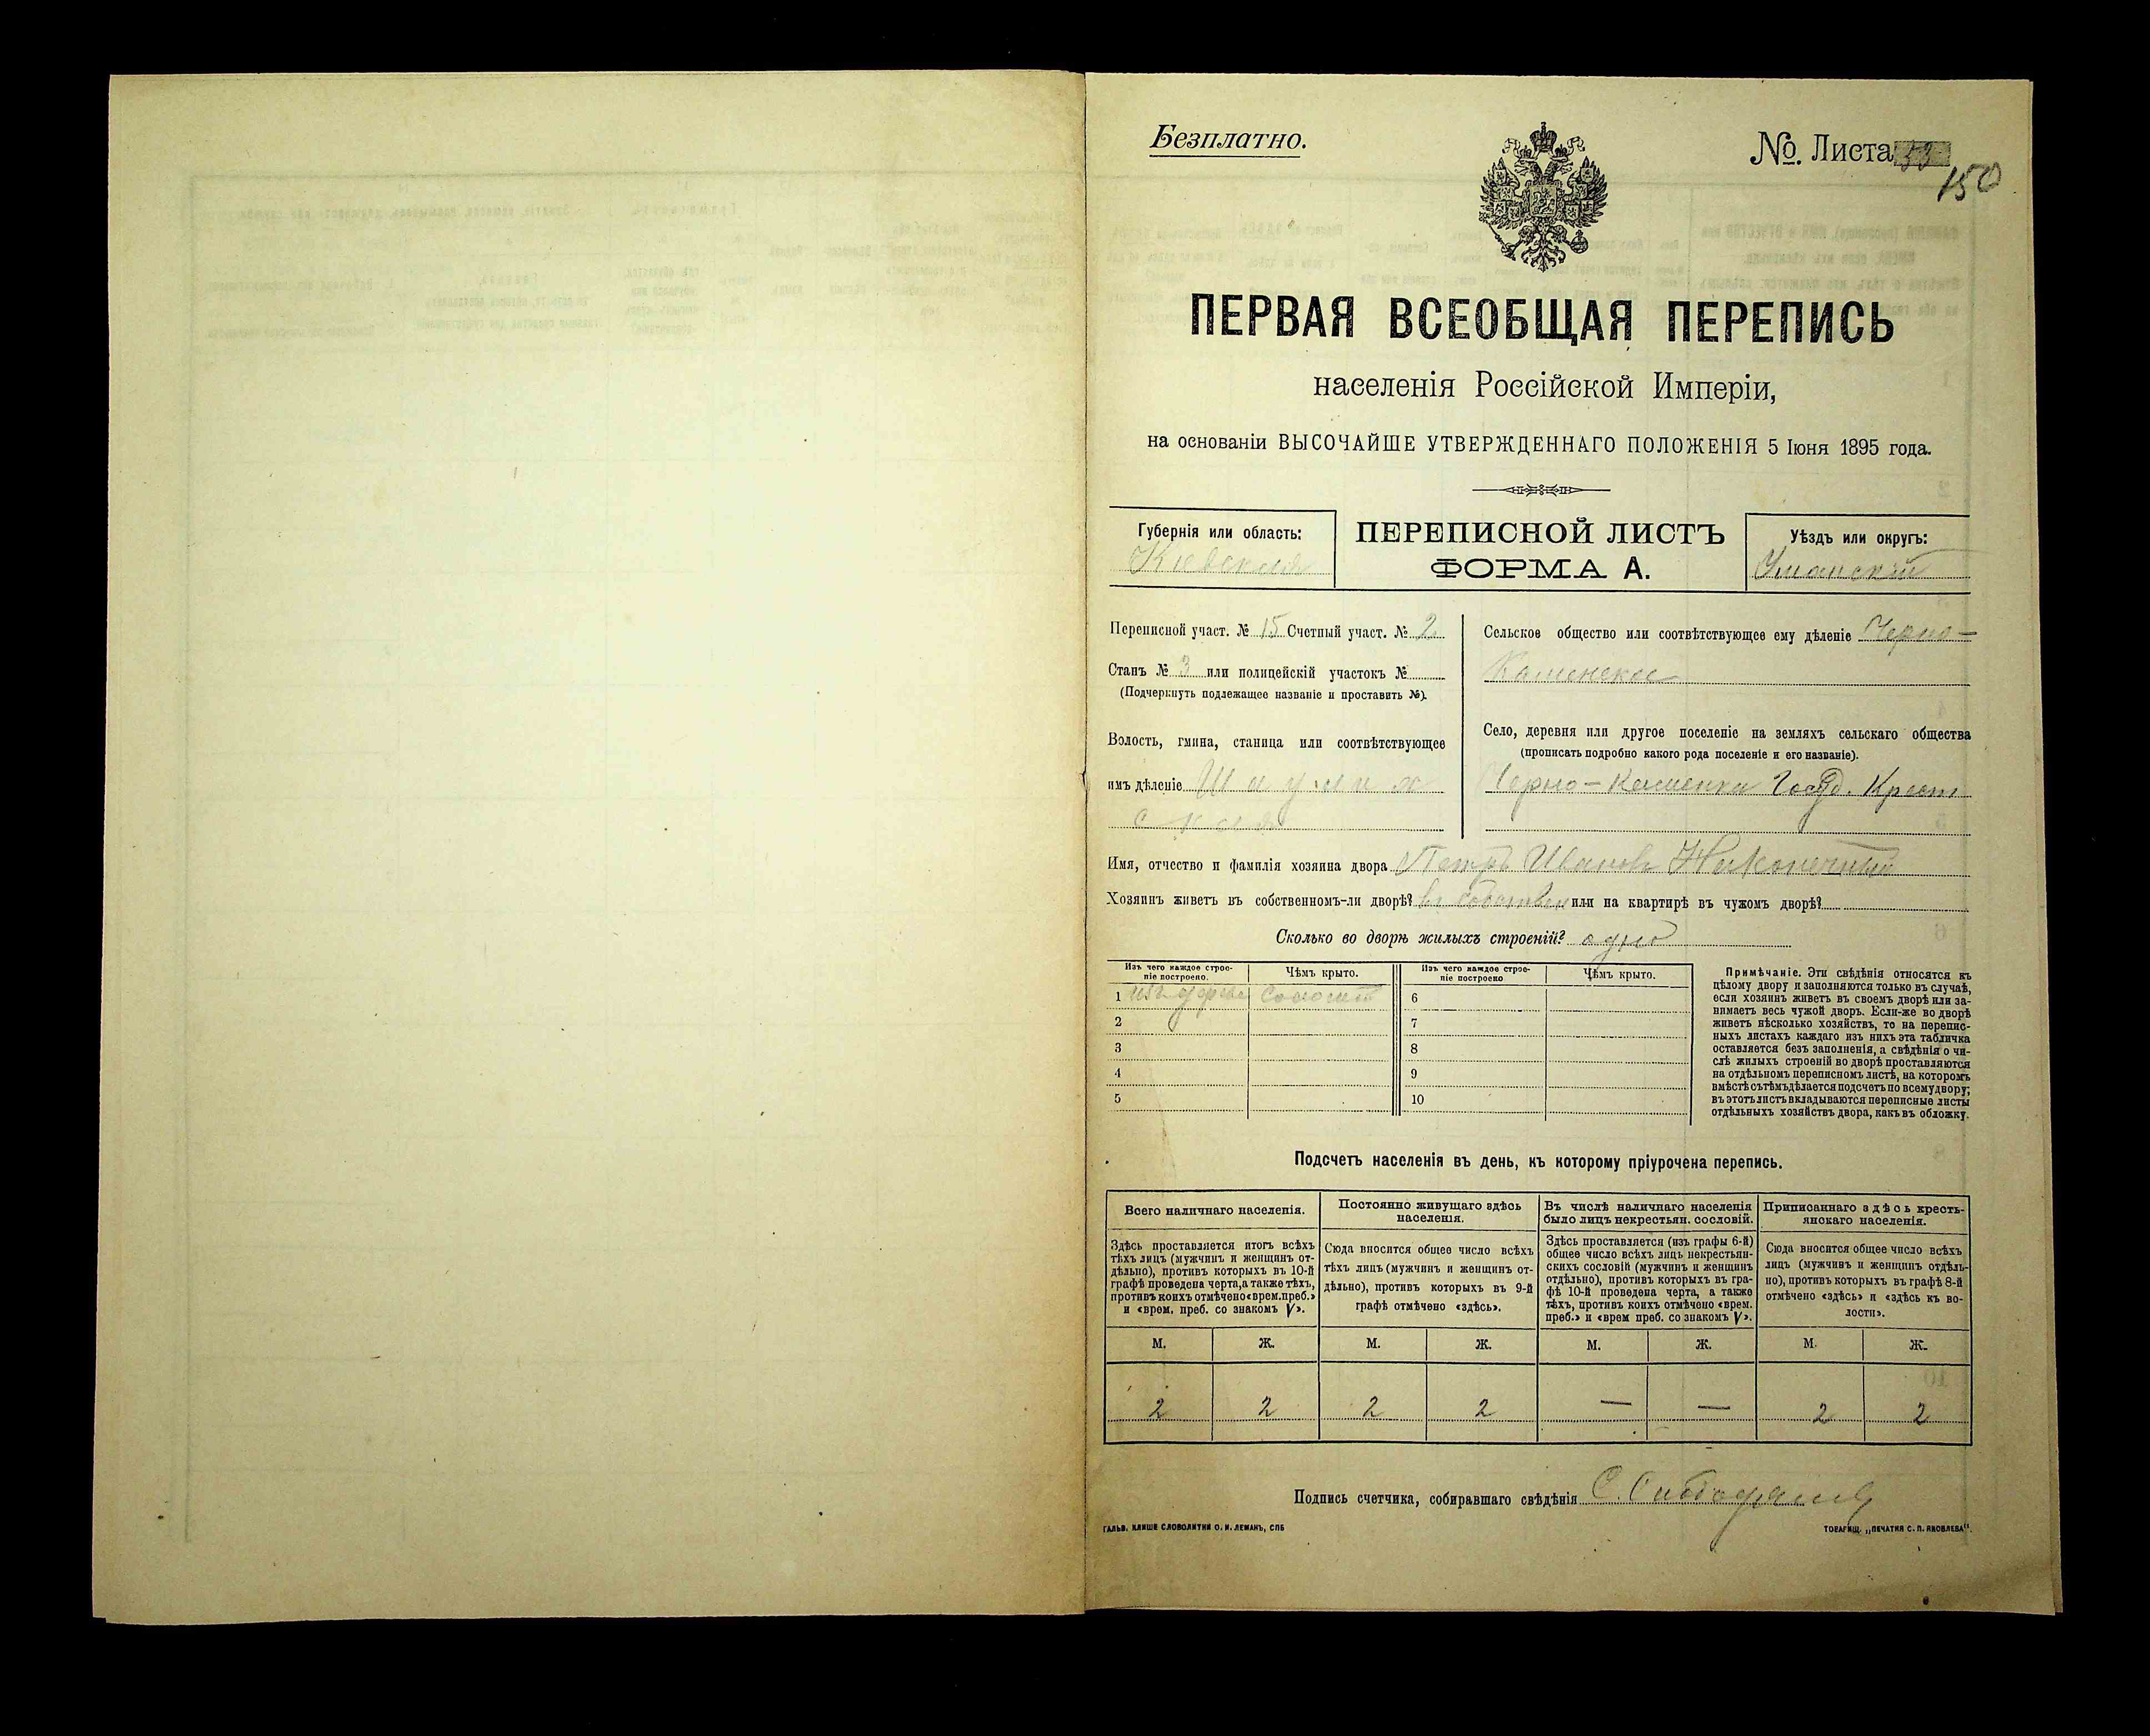 Безплатно.
№. Листа 53
150
ПЕРВАЯ ВСЕОБЩАЯ ПЕРЕПИСЬ
населенія Россійской Имперіи,
на основаніи ВЫСОЧАЙШЕ УТВЕРЖДЕННАГО ПОЛОЖЕНІЯ 5 Іюня 1895 года.
Губернія или область:
Кіевская
ПЕРЕПИСНОЙ ЛИСТЪ
ФОРМА А.
Уѣздъ или округъ:
Уманскій
Переписной участ. № 15 Счетный участ. № 2
Станъ № 3 или полицейскій участокъ №
(Подчеркнуть подлежащее названіе и проставить №).
Волость, гмина, станица или соотвѣтствующее
имъ дѣленіе
Сельское общество или соотвѣтствующее ему дѣленіе Черно-
Каменское
Село, деревня или другое поселеніе на земляхъ сельскаго общества
(прописать подробно какого рода поселеніе и его названіе).
Черно-Каменка Госуд. Крест
Имя, отчество и фамилія хозяина двора Петръ Ивановъ Наконечный
Хозяинъ живетъ въ собственномъ-ли дворѣ? въ собствен или на квартирѣ въ чужомъ дворѣ?
Сколько во дворѣ жилыхъ строеній? одно
Изъ чего каждое строе-
ніе построено.
Чѣмъ крыто.
Изъ чего каждое строе-
ніе построено
Чѣмъ крыто.
1 изъ дерева
6
2
7
3
8
4
9
5
10
Примѣчаніе. Эти свѣдѣнія относятся къ
цѣлому двору и заполняются только въ случаѣ,
если хозяинъ живетъ въ своемъ дворѣ или за-
нимаетъ весь чужой дворъ. Если-же во дворѣ
живетъ нѣсколько хозяйствъ, то на перепис-
ныхъ листахъ каждаго изъ нихъ эта табличка
оставляется безъ заполненія, а свѣдѣнія о чи-
слѣ жилыхъ строеній во дворѣ проставляются
на отдѣльномъ переписномъ листѣ, на которомъ
вмѣстѣ съ тѣмъ дѣлается подсчетъ по всему двору;
въ этотъ листъ вкладываются переписные листы
отдѣльныхъ хозяйствъ двора, какъ въ обложку.
Подсчетъ населенія въ день, къ которому пріурочена перепись.
Всего наличнаго населенія.
Здѣсь проставляется итогъ всѣхъ
тѣхъ лицъ (мужчинъ и женщинъ от-
дѣльно), противъ которыхъ въ 10-й
графѣ проведена черта, а также тѣхъ,
противъ коихъ отмѣчено «врем. преб.»
и «врем. преб. со знакомъ V».
Постоянно живущаго здѣсь
населенія.
Сюда вносится общее число всѣхъ
тѣхъ лицъ (мужчинъ и женщинъ от-
дѣльно), противъ которыхъ въ 9-й
графѣ отмѣчено «здѣсь».
Въ числѣ наличнаго населенія
было лицъ некрестьян. сословій.
Здѣсь проставляется (изъ графы 6-й)
общее число всѣхъ лицъ некрестьян-
скихъ сословій (мужчинъ и женщинъ
отдѣльно), противъ которыхъ въ гра-
фѣ 10-й проведена черта, а также
тѣхъ, противъ коихъ отмѣчено «врем.
преб.» и «врем преб. со знакомъ V».
Приписаннаго здѣсь кресть-
янскаго населенія.
Сюда вносится общее число всѣхъ
лицъ (мужчинъ и женщинъ отдѣль-
но), противъ которыхъ въ графѣ 8-й
отмѣчено «здѣсь» и «здѣсь къ во-
лости».
М. Ж. М. Ж. М. Ж. М. Ж.
2 2 2 2 — — 2 2
Подпись счетчика, собиравшаго свѣдѣнія
ГАЛЬВ. КЛИШЕ СЛОВОЛИТНИ О. И. ЛЕМАНЪ, СПБ
ТОВАРИЩ. „ПЕЧАТНЯ С. П. ЯКОВЛЕВА“.